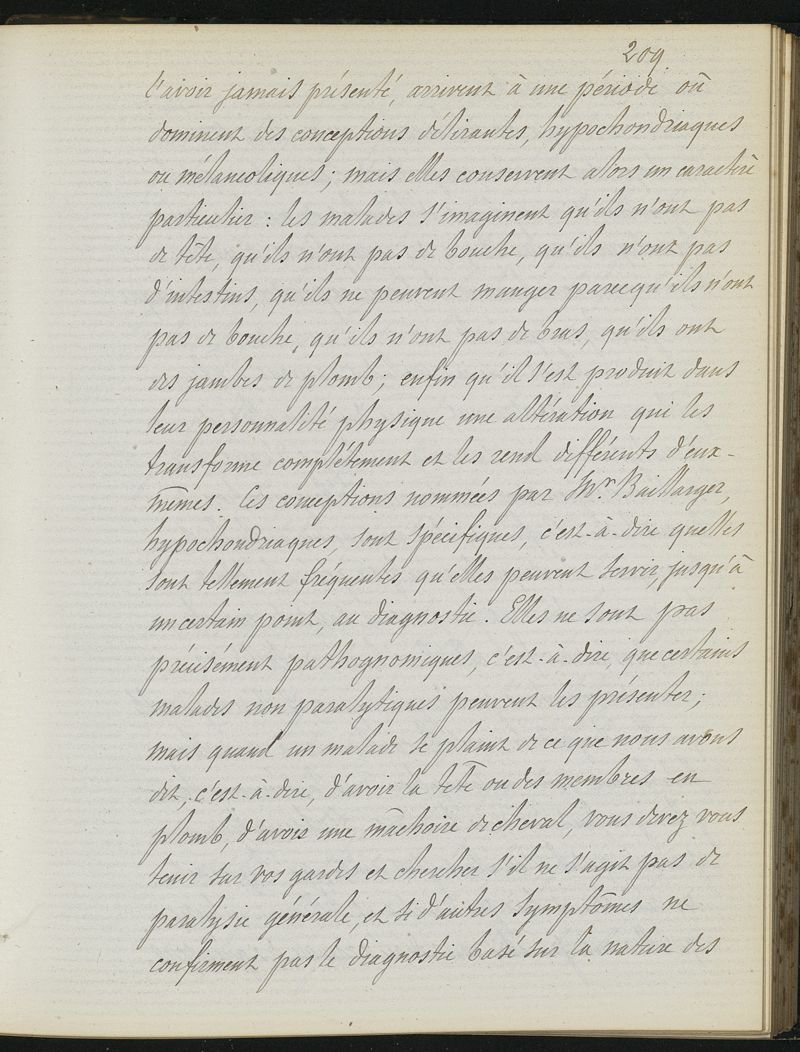 209
l'avoir jamais présenté, arrivent à une période où
dominent des conceptions délirantes, hypochondriaques
ou mélancoliques; mais elles conservent alors un caractère
particulier : les malades s'imaginent qu'ils n'ont pas
de tête, qu'ils n'ont pas de bouche, qu'ils n'ont pas
d'intestins, qu'ils ne peuvent manger parcequ'ils n'ont
pas de bouche, qu'ils n'ont pas de bras, qu'ils ont
des jambes de plomb; enfin qu'il s'est produit dans
leur personnalité physique une altération qui les
transforme complétement et les rend différents d'eux-
mêmes. Ces conceptions nommées par Mr. Baillarger,
hypochondriaques, sont spécifiques, c'est-à-dire quelles
sont tellement fréquentes qu'elles peuvent servir, jusqu'à
un certain point, au diagnostic. Elles ne sont pas
précisément pathognomiques, c'est-à-dire, que certains
malades non paralytiques peuvent les présenter;
mais quand un malade se plaint de ce que nous avons
dit, c'est-à-dire, d'avoir la tête ou des membres en
plomb, d'avoir une mâchoire de cheval, vous devez vous
tenir sur vos gardes et chercher s'il ne s'agit pas de
paralysie générale, et si d'autres symptômes ne
confirment pas le diagnostic basé sur la nature des